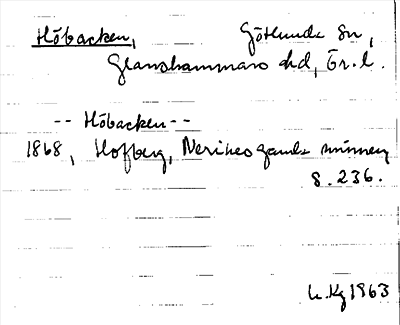 Höbacken, Götlunda sn,
Glanshammars hd, Ör.l.
-- Höbacken --
1868, Hofberg, Nerikes gamla minnen
s. 236.
Kg 1963